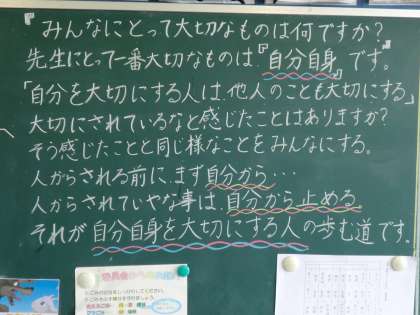 『みんなにとって大切なものは何ですか?
先生にとって一番大切なものは、『自分自身』です。』
「自分を大切にする人は、他人のことも大切にする」
大切にされているなと感じたことはありますか?
そう感じたことと同じ様なことをみんなにする。
人からされる前に、まず自分から…
人からされていやな事は、自分から止める。
それが自分自身を大切にする人の歩む道です。